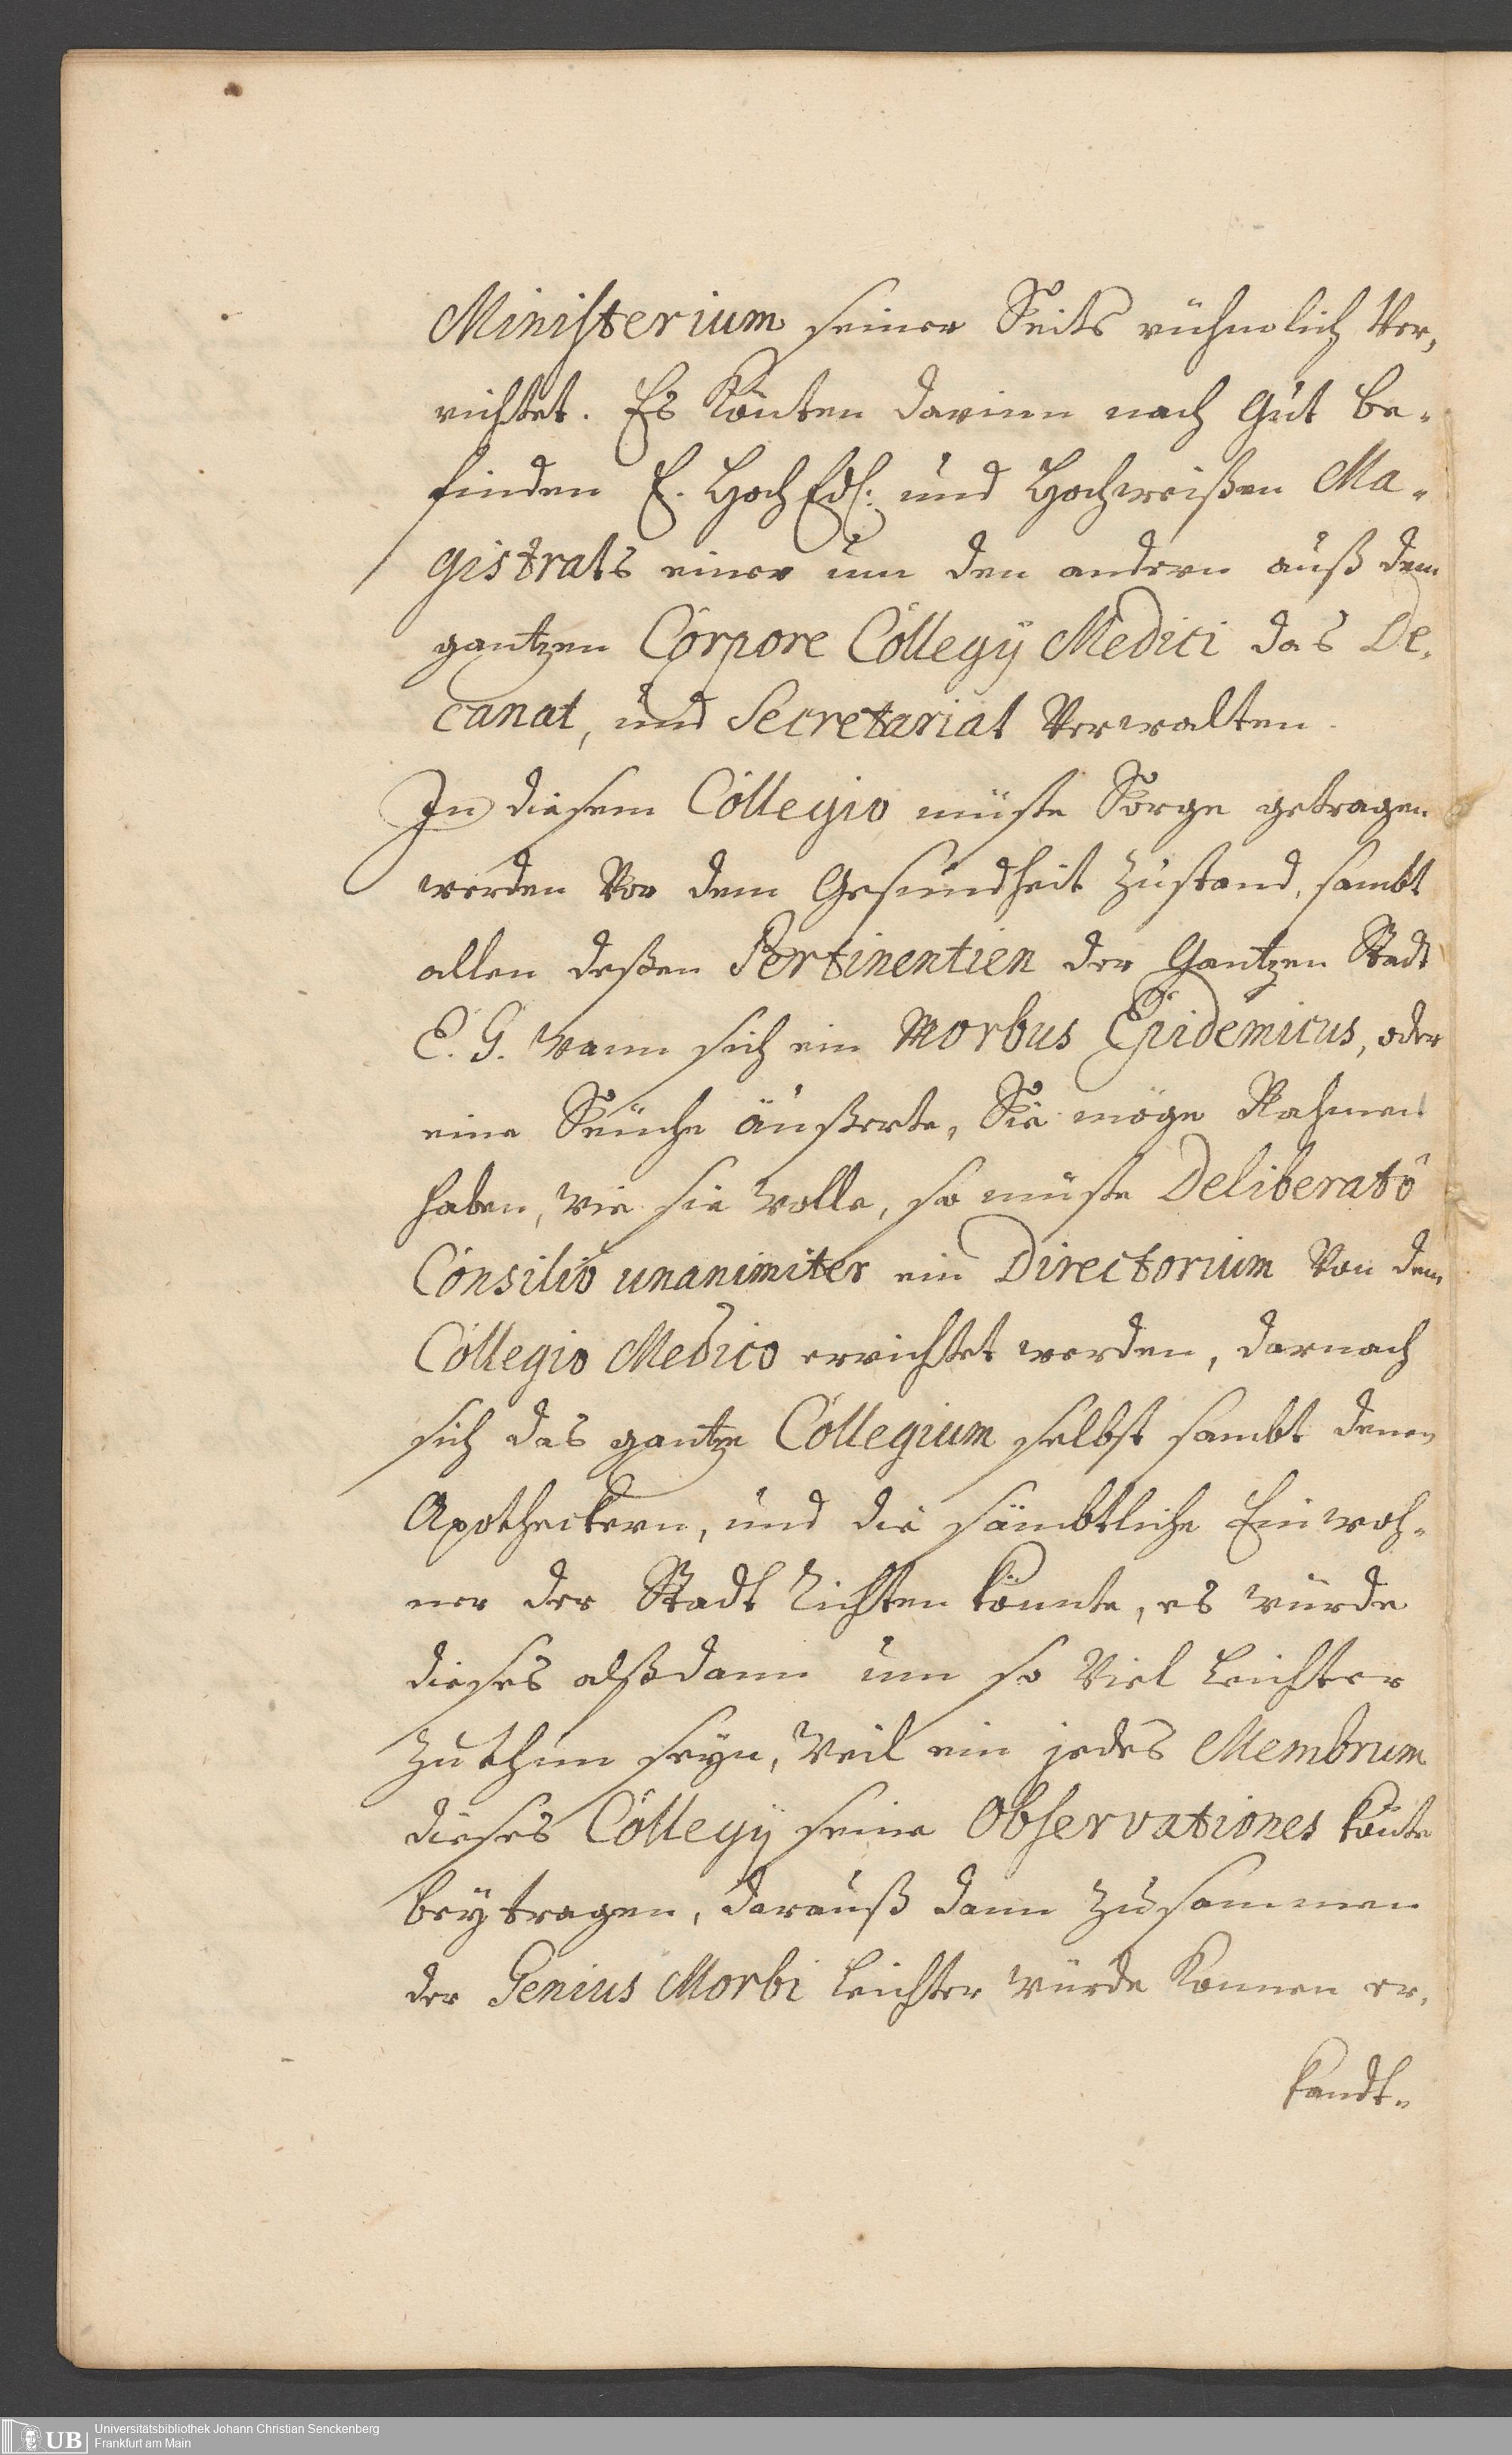 Ministerium seiner Seits rühmlich Ver,
richtet. Es Könten darinn nach Gut be-
finden E. HochEdl: und Hochweißen Ma-
gistrats einer um den andern auß dem
gantzen Corpore Collegÿ Medici das De,
canat, und Secretariat Verwalten.
In diesem Collegio müste Sorge getragen
werden Vor dem Gesundheit Zustand, sambt
allen deßen Pertinentien der Gantzen Stadt
E. G. Wann sich ein Morbus Epidemicus, oder
eine Seuche äußerte, Sie möge Nahmen
haben, wie sie wolle, so müste Deliberatô
Consiliô unanimiter ein Directorium Von dem
Collegio Medico errichtet werden, darnach
sich das gantze Collegium selbst sambt denen
Apotheckern, und die sämbtliche Einwoh-
ner der Stadt Richten könnte, es würde
dieses alßdann um so Viel leichter
Zu thun seyn, Weil ein jedes Membrum
dieses Collegÿ seine Observationes könte
beytragen, darauß dann Zusammen
der Genius Morbi leichter würde Konnen er,
kandt-
Universitätsbibliothek Johann Christian Senckenberg
UB Frankfurt am Main